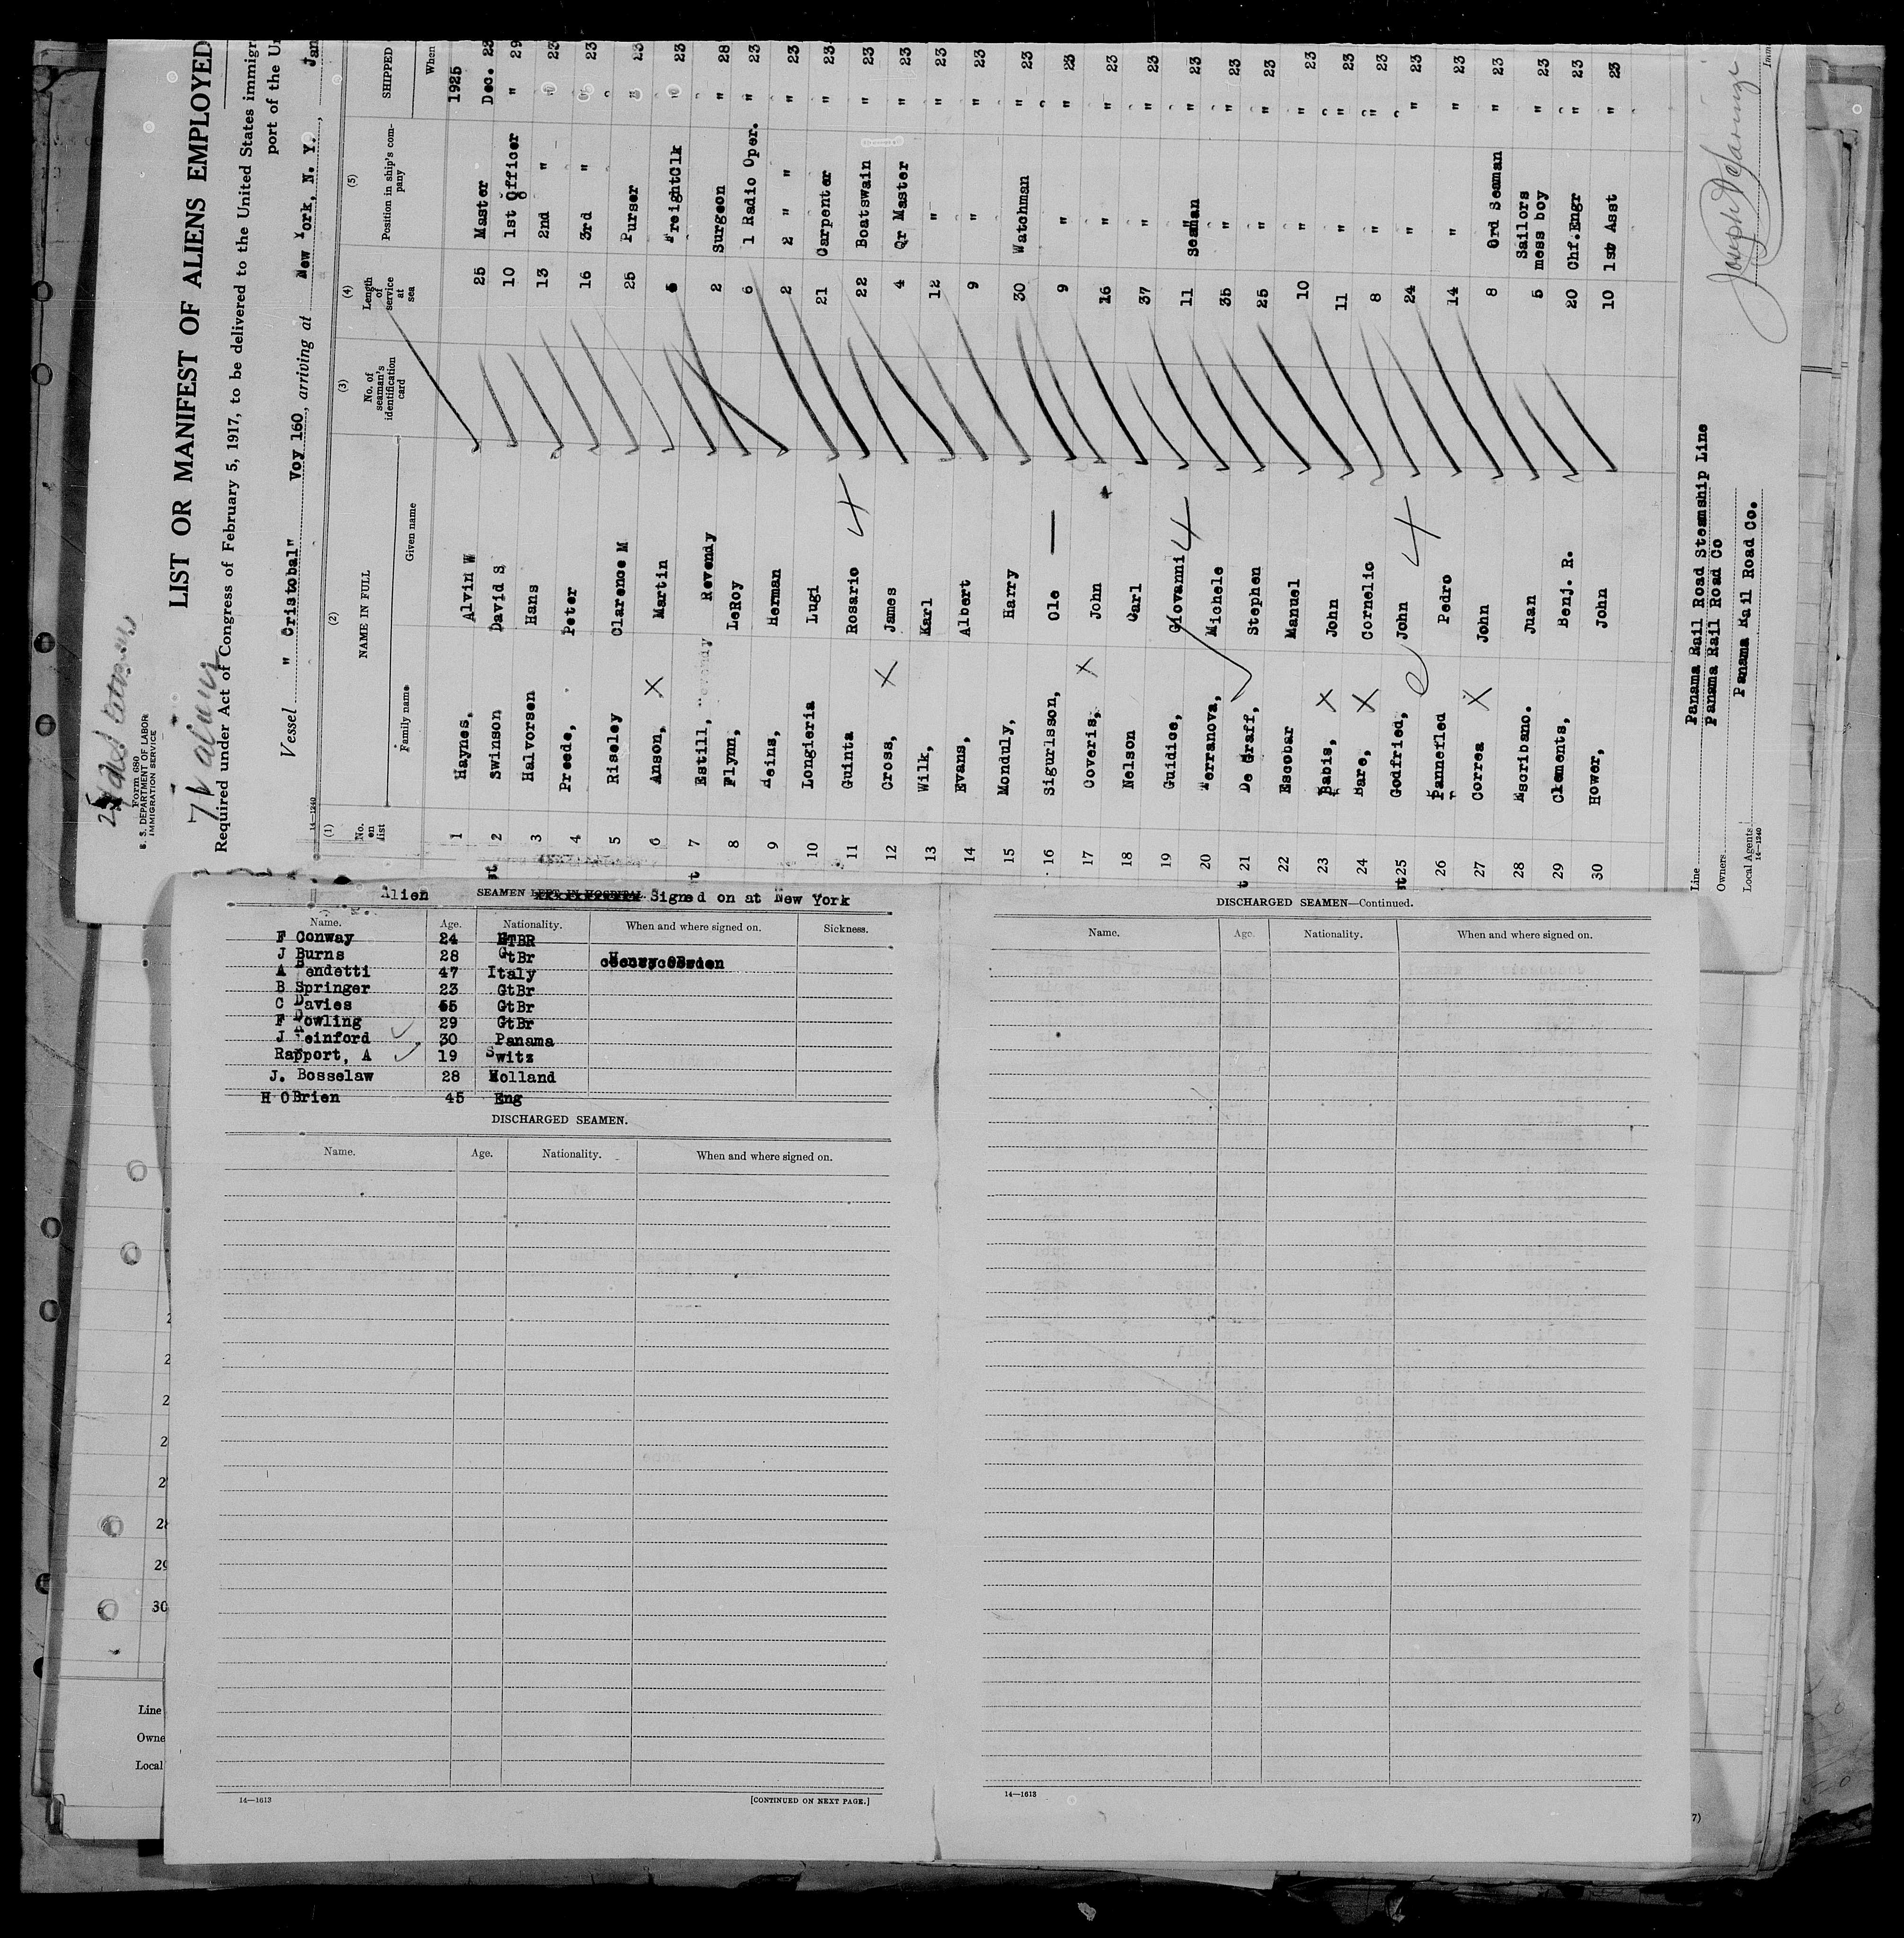 Form 680
S. DEPARTMENT OF LABOR
IMMIGRATION SERVICE
LIST OR MANIFEST OF ALIENS EMPLOYED
Required under Act of Congress of February 5, 1917, to be delivered to the United States immigr
port of the Un
Vessel " Cristobal" Voy 160, arriving at New York, N. Y., Jan
14—1240
(1) (2) (3) (4) (5)
No. on list NAME IN FULL No. of seaman's identification card Length of service at sea Position in ship's company SHIPPED
Family name Given name When
1925
1 Haynes, Alvin W 25 Master Dec. 23
2 Swinson David S 10 1st Officer " 29
3 Halvorsen Hans 13 2nd " " 23
4 Preede, Peter 16 3rd " " 23
5 Riseley Clarence M 25 Purser " 23
6 Anson, Martin 5 FreightClk " 23
7 Estill, Revendy 2 Surgeon " 28
8 Flynn, LeRoy 6 1 Radio Oper. " 23
9 Heins, Herman 2 2 " " " 23
10 Longieria Lugi 21 Carpenter " 23
11 Guinta Rosario 22 Boatswain " 23
12 Cross, James 4 Qr Master " 23
13 Wilk, Karl 12 " " 23
14 Evans, Albert 9 " " 23
15 Monduly, Harry 30 Watchman " 23
16 Sigurlsson, Ole 9 " " 23
17 Coveris, John 16 " " 23
18 Nelson Carl 37 " " 23
19 Guidice, Giovanni 11 Seaman " 23
20 Terranova, Michele 35 " " 23
21 De Graff, Stephen 25 " " 23
22 Escobar Manuel 10 " " 23
23 Babis, John 11 " " 23
24 Bare, Cornelio 8 " " 23
25 Godfried, John 24 " " 23
26 Pannefled Pedro 14 " " 23
27 Correa John 8 Ord Seaman " 23
28 Escribano. Juan 5 Sailors mess boy " 23
29 Clements, Benj. R. 20 Chf.Engr " 23
30 Hower, John 10 1st Asst " 23
Line Panama Rail Road Steamship Line
Owners Panama Rail Road Co
Local Agents Panama Rail Road Co.
14—1240
Alien SEAMEN LEFT IN HOSPITAL Signed on at New York
Name. Age. Nationality. When and where signed on. Sickness.
F Conway 24 GTBR
J Burns 28 GtBr
A Bendetti 47 Italy
B Springer 23 GtBr
C Davies 55 GtBr
F Dowling 29 GtBr
J Feinford 30 Panama
Rapport, A 19 Switz
J. Bosselaw 28 Holland
H OBrien 45 Eng
DISCHARGED SEAMEN.
Name. Age. Nationality. When and where signed on.
14—1613
[CONTINUED ON NEXT PAGE.]
DISCHARGED SEAMEN—Continued.
Name. Age. Nationality. When and where signed on.
14—1613
29
30
Line
Owne
Local
7)